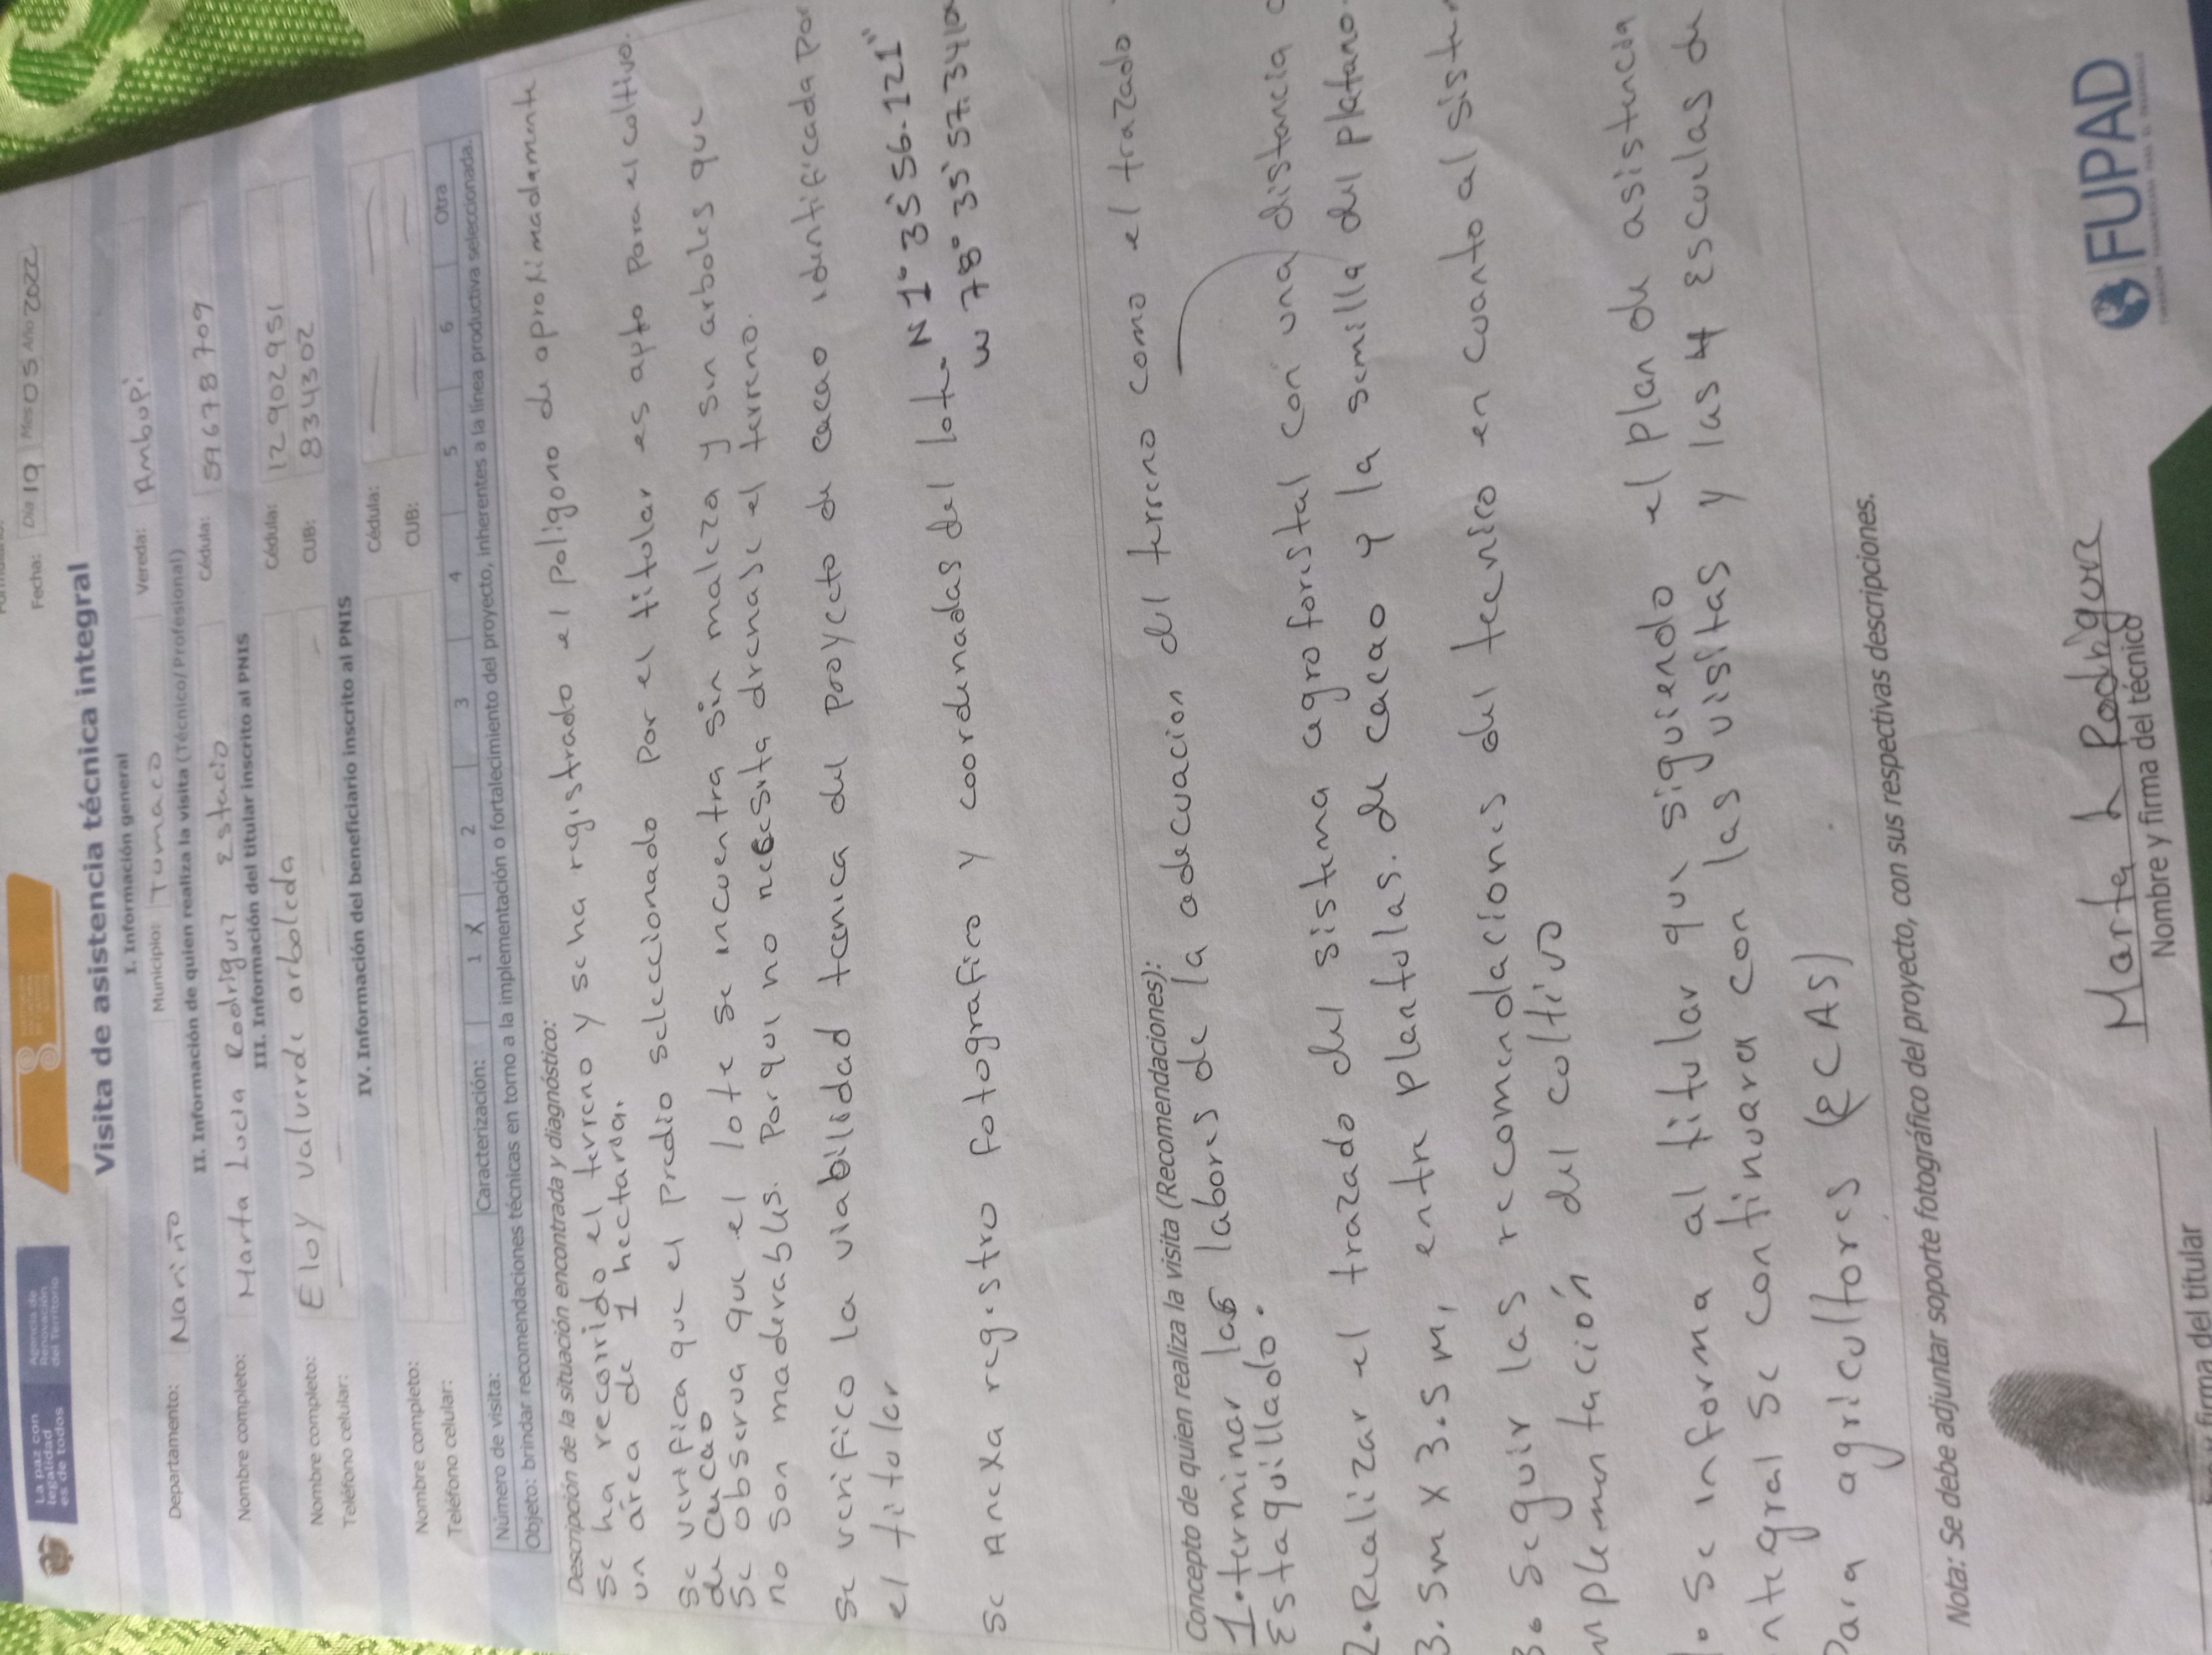 La paz con
legalidad
es de todos
Agencia de
Renovación
del Territorio
Fecha: Día 19 Mes 05 Año 2022
Visita de asistencia técnica integral
I. Información general
Departamento: Nariño Municipio: Tumaco Vereda: Ambupi
II. Información de quien realiza la visita (Técnico/Profesional)
Nombre completo: Marta Lucia Rodriguez Estacio Cédula: 59678709
III. Información del titular inscrito al PNIS
Nombre completo: Eloy Valverde arboleda Cédula: 12902951
Teléfono celular: CUB: 834302
IV. Información del beneficiario inscrito al PNIS
Nombre completo: Cédula:
Teléfono celular: CUB:
Número de visita: Caracterización: 1 X 2 3 4 5 6 Otra
Objeto: brindar recomendaciones técnicas en torno a la implementación o fortalecimiento del proyecto, inherentes a la línea productiva seleccionada.
Descripción de la situación encontrada y diagnóstico:
Se ha recorrido el terreno y se ha registrado el poligono de aproximadamente
un área de 1 hectarea.
Se verifica que el predio seleccionado por el titular es apto para el coltivo.
de cacao
Se observa que el lote se incuentra sin maleza y sin arboles que
no son maderables. Porque no necesita drenase el terreno.
Se verifico la viabilidad tecnica del proyecto de cacao identificada por
el titular
Se Anexa registro fotografico y coordenadas del lote. N 1° 35' 56.121"
W 78° 35' 57.341
Concepto de quien realiza la visita (Recomendaciones):
1. terminar las labores de la adecuacion del terreno como el trazado
Estaquillado.
2. Realizar el trazado del sistema agroforestal con una distancia
3.5m x 3.5 m, entre plantulas. de cacao y la semilla del platano.
3. Seguir las recomendaciones del tecnico en cuanto al sistem
mplementación del coltivo
. Se informa al titular que siguiendo el plan de asistencia
ntegral se continuara con las visitas y las 4 Escuelas de
Para agricultores (ECAS)
Nota: Se debe adjuntar soporte fotográfico del proyecto, con sus respectivas descripciones.
Marta L Rodriguez
firma del titular
Nombre y firma del técnico
FUPAD